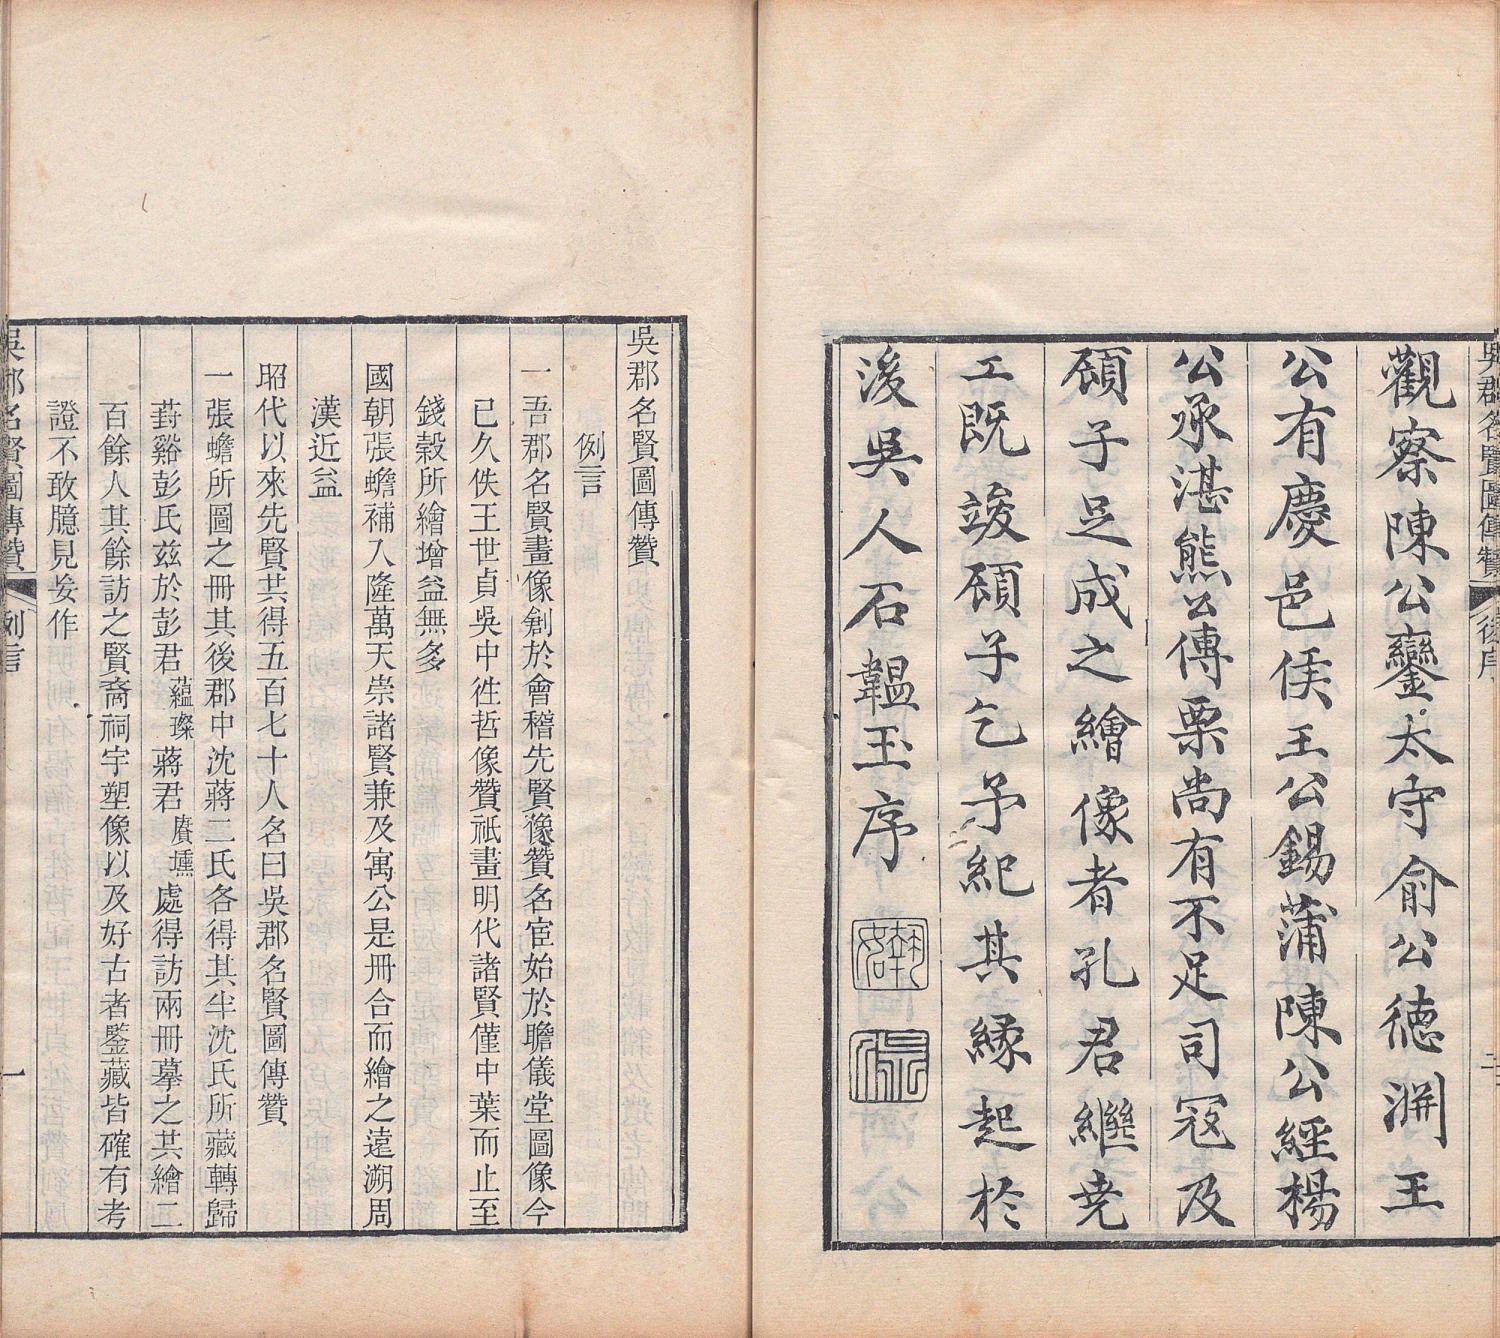 吳郡名賢圖傳贊
後序
二
觀察陳公鑾太守俞公德淵王
公有慶邑侯王公錫蒲陳公經楊
公承湛熊公傳栗尚有不足司寇及
頋子足成之繪像者孔君繼堯
工既竣頋子乞予紀其緣起於
後吳人石韞玉序
吳郡名賢圖傳贊
例言
一吾郡名賢畫像創於會稽先賢像贊名宦始於瞻儀堂圖像今
已久佚王世貞吳中徃哲像贊祇畫明代諸賢僅中葉而止至
錢榖所繪增益無多
國朝張蟾補入隆萬天崇諸賢兼及寓公是冊合而繪之遠溯周
漢近益
昭代以來先賢共得五百七十人名曰吳郡名賢圖傳贊
一張蟾所圖之冊其後郡中沈蔣二氏各得其半沈氏所藏轉歸
葑谿彭氏玆於彭君蘊璨蔣君賡壎處得訪兩冊摹之共繪二
百餘人其餘訪之賢裔祠宇塑像以及好古者鑒藏皆確有考
證不敢臆見妄作
吳郡名賢圖傳贊
例言
一